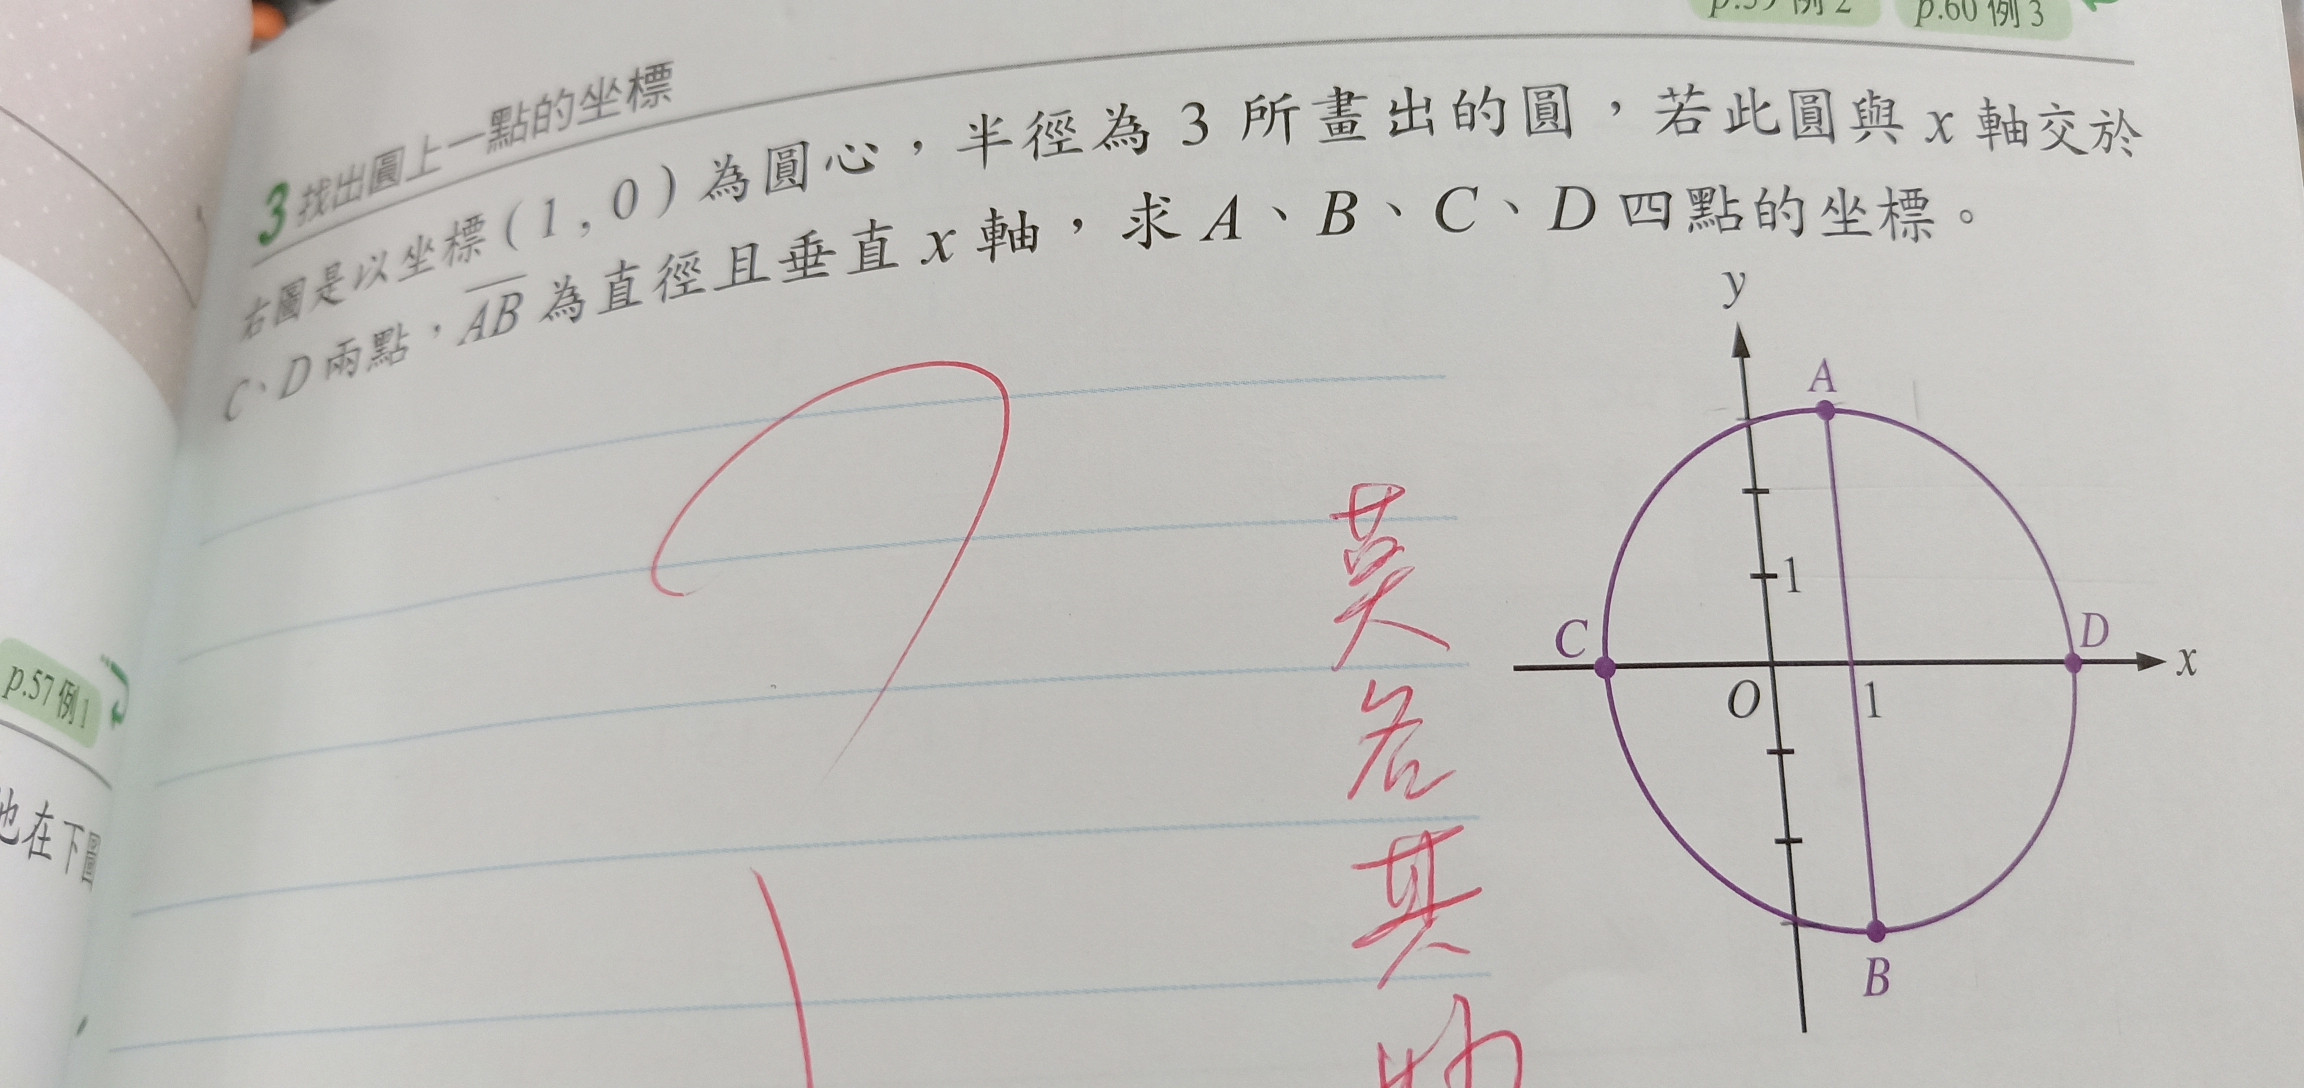 p.59 例 2
p.60 例 3
3 找出圓上一點的坐標
右圖是以坐標 ( 1 , 0 ) 為圓心，半徑為 3 所畫出的圓，若此圓與 x 軸交於
C、D 兩點，AB 為直徑且垂直 x 軸，求 A、B、C、D 四點的坐標。
y
A
1
C
D
x
O
1
B
p.57 例 1
也在下圖
其